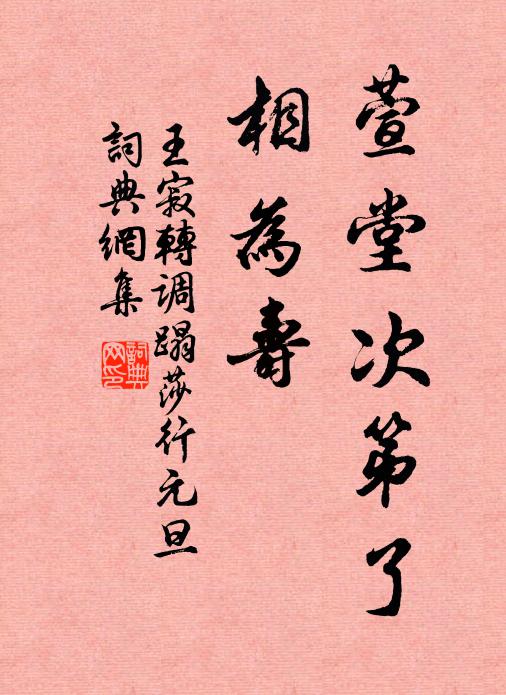 萱堂次第了
相為壽
王寂轉調蹋莎行元旦
詞典網集
詞典网印